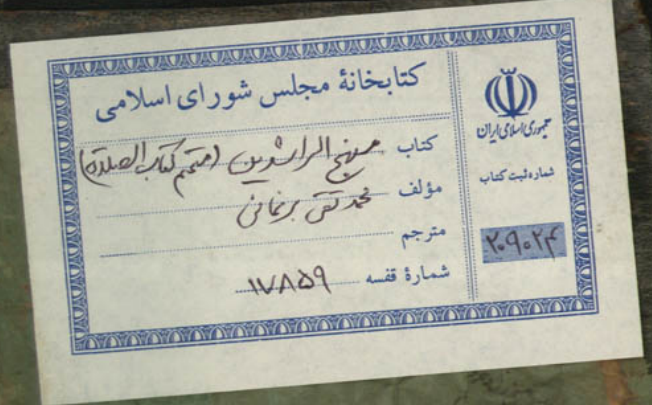 کتابخانهٔ مجلس شورای اسلامی
کتاب منهج الراشدین (متمم کتاب الصلوة)
مؤلف محمد تقی برغانی
مترجم
شمارهٔ قفسه ۱۷۸۵۹
جمهوری اسلامی ایران
شماره ثبت کتاب
۲۰۹۰۲۴